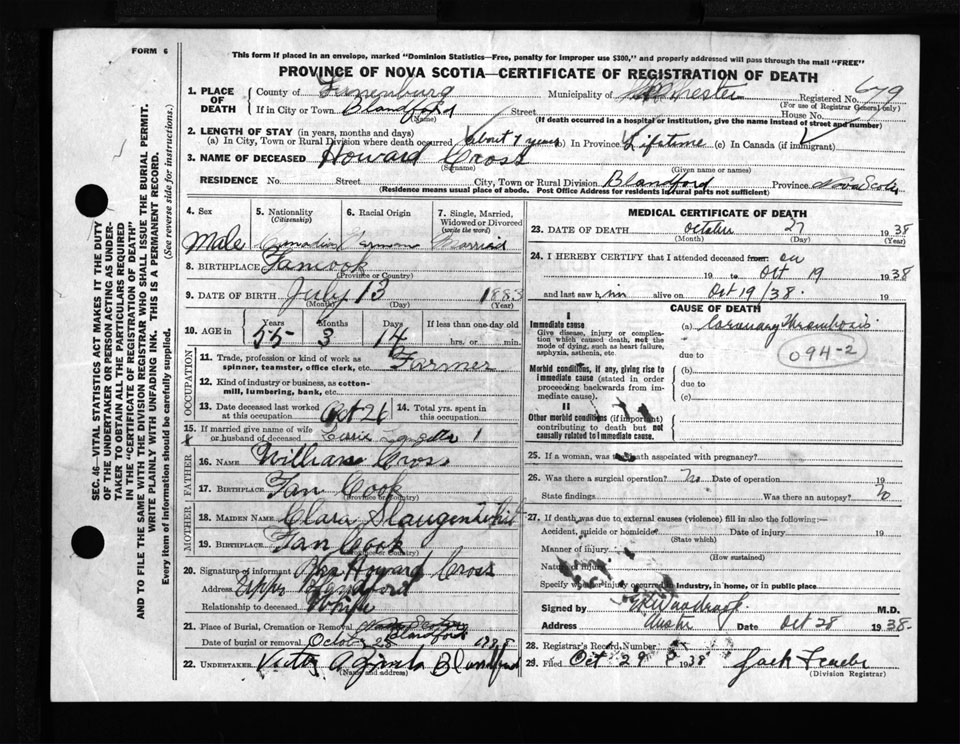 FORM 6
This form if placed in an envelope, marked "Dominion Statistics—Free, penalty for improper use $300," and properly addressed will pass through the mail "FREE"
PROVINCE OF NOVA SCOTIA—CERTIFICATE OF REGISTRATION OF DEATH
1. PLACE OF DEATH
County of Lunenburg Municipality of Chester Registered No. 679
(For use of Registrar General only)
If in City or Town Blandford Street House No.
(Name) (If death occurred in a hospital or institution, give the name instead of street and number)
2. LENGTH OF STAY (in years, months and days)
(a) In City, Town or Rural Division where death occurred about 7 years (b) In Province Lifetime (c) In Canada (if immigrant)
3. NAME OF DECEASED Howard Cross
(Surname) (Given name or names)
RESIDENCE No. Street City, Town or Rural Division Blandford Province Nova Scotia
(Residence means usual place of abode. Post Office Address for residents in rural parts not sufficient)
4. Sex
Male
5. Nationality
(Citizenship)
Canadian
6. Racial Origin
German
7. Single, Married, Widowed or Divorced
(write the word)
Married
8. BIRTHPLACE Tancook
(Province or Country)
9. DATE OF BIRTH July 13 1883
(Month) (Day) (Year)
10. AGE in Years Months Days If less than one day old
55 3 14 hrs. or min.
OCCUPATION
11. Trade, profession or kind of work as spinner, teamster, office clerk, etc. Farmer
12. Kind of industry or business, as cotton-mill, lumbering, bank, etc.
13. Date deceased last worked at this occupation Oct 26
14. Total yrs. spent in this occupation
15. If married give name of wife or husband of deceased
FATHER
16. NAME William Cross
17. BIRTHPLACE Tan Cook
(Province or Country)
MOTHER
18. MAIDEN NAME Clara Slaugenwhit
19. BIRTHPLACE Tan Cook
(Province or Country)
20. Signature of informant Mrs Howard Cross
Address Blandford
Relationship to deceased Wife
21. Place of Burial, Cremation or Removal Blandford
Date of burial or removal Octob 28
22. UNDERTAKER Blandford
(Name and address)
MEDICAL CERTIFICATE OF DEATH
23. DATE OF DEATH October 27 1938
(Month) (Day) (Year)
24. I HEREBY CERTIFY that I attended deceased from: on
19 to Oct 19 1938
and last saw him alive on Oct 19/38. 19
CAUSE OF DEATH
I
Immediate cause
Give disease, injury or complication which caused death, not the mode of dying, such as heart failure, asphyxia, asthenia, etc.
(a) Coronary Thrombosis
094-2
due to
Morbid conditions, if any, giving rise to immediate cause (stated in order proceeding backwards from immediate cause).
(b)
due to
(c)
II
Other morbid conditions (if important) contributing to death but not causally related to immediate cause.
25. If a woman, was the death associated with pregnancy?
26. Was there a surgical operation? No Date of operation 19
State findings Was there an autopsy? No
27. If death was due to external causes (violence) fill in also the following:
Accident, suicide or homicide? Date of injury 19
(State which)
Manner of injury
(How sustained)
Nature of injury
Specify whether injury occurred in industry, in home, or in public place
Signed by M.D.
Address Date Oct 28 1938.
28. Registrar's Record Number
29. Filed Oct 29 1938
(Division Registrar)
SEC. 46—VITAL STATISTICS ACT MAKES IT THE DUTY
OF THE UNDERTAKER OR PERSON ACTING AS UNDER-
TAKER TO OBTAIN ALL THE PARTICULARS REQUIRED
IN THE "CERTIFICATE OF REGISTRATION OF DEATH"
AND TO FILE THE SAME WITH THE DIVISION REGISTRAR WHO SHALL ISSUE THE BURIAL PERMIT.
WRITE PLAINLY WITH UNFADING INK. THIS IS A PERMANENT RECORD.
Every item of information should be carefully supplied. (See reverse side for instructions.)